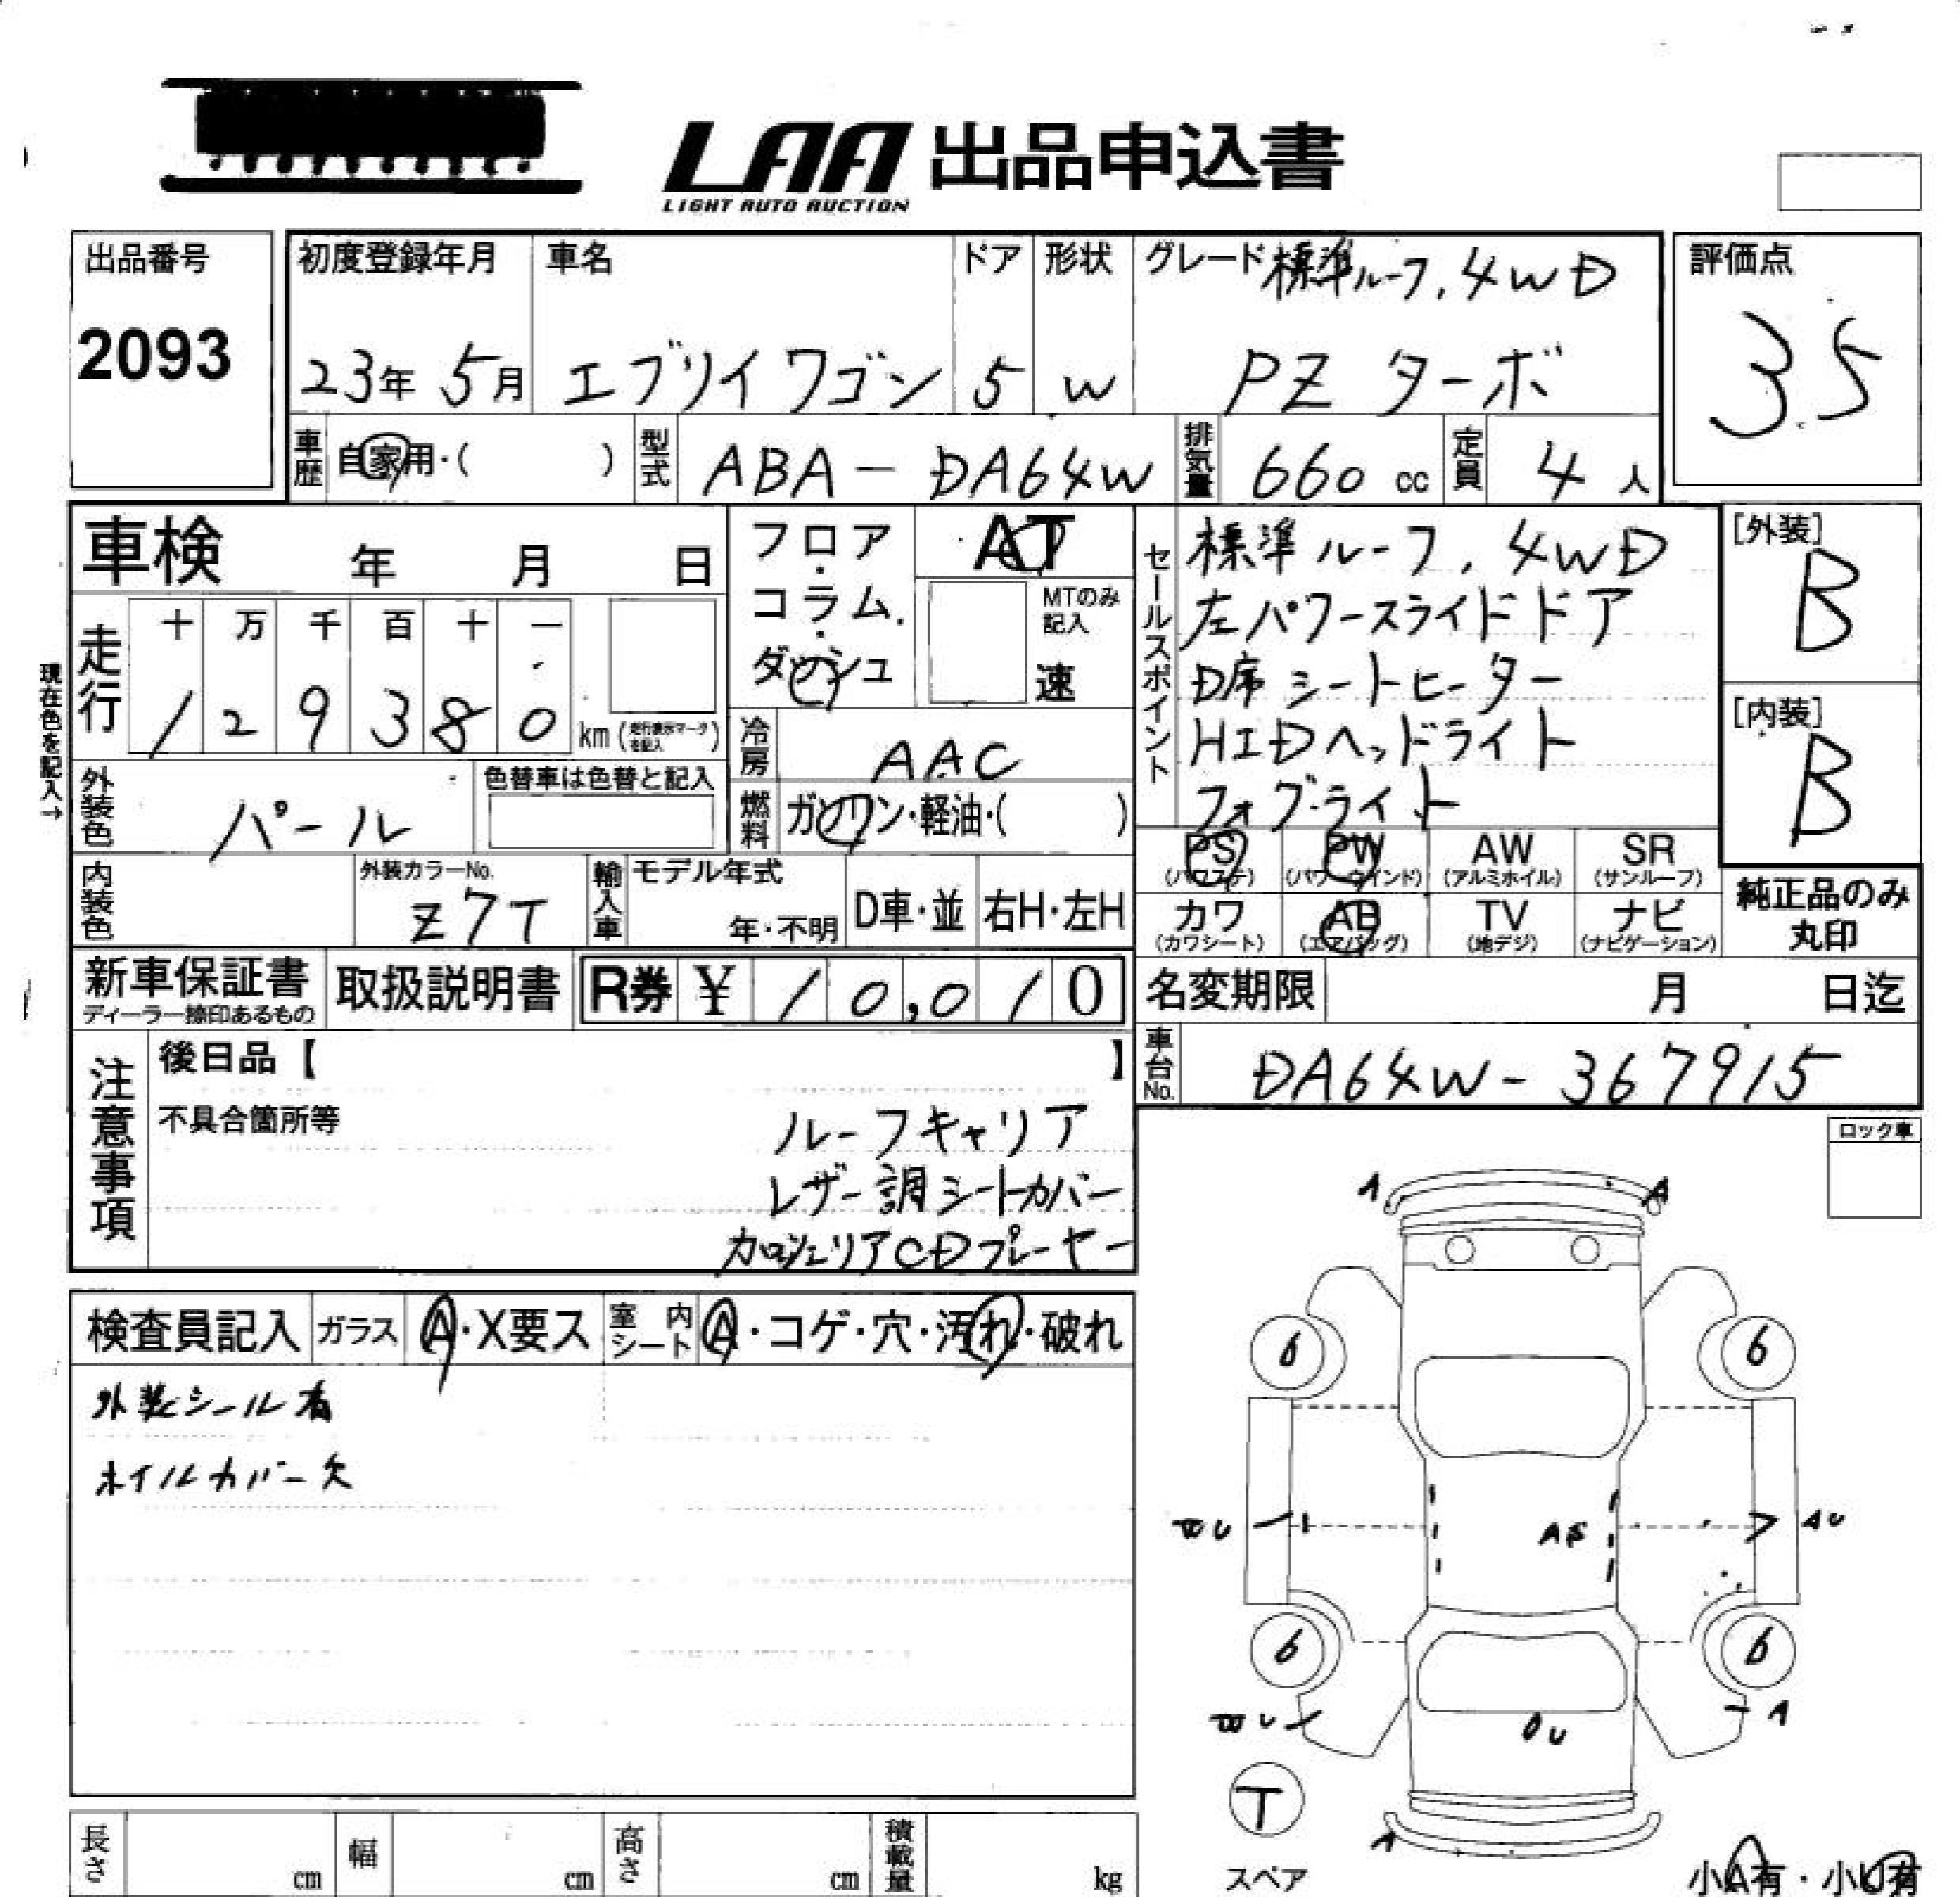 LAA 出品申込書
LIGHT AUTO AUCTION
出品番号
2093
初度登録年月
23年 5月
車名
エブリイワゴン
ドア
5
形状
W
グレード 標準ルーフ.4WD
PZ ターボ
評価点
3.5
車歴 自家用・( )
型式 ABA-DA64W
排気量 660 cc
定員 4 人
車検 年 月 日
フロア・コラム・ダッシュ
AT
MTのみ記入
速
走行
十 万 千 百 十 一
1 2 9 3 8 0 km (走行表示マークを記入)
現在色を記入→
冷房 AAC
外装色 パール
色替車は色替と記入
燃料 ガソリン・軽油・( )
内装色
外装カラーNo.
Z7T
輸入車
モデル年式
年・不明
D車・並
右H・左H
新車保証書
ディーラー捺印あるもの
取扱説明書
R券 ¥ 10,010
セールスポイント
標準ルーフ.4WD
左パワースライドドア
D席シートヒーター
HIDヘッドライト
フォグライト
[外装]
B
[内装]
B
PS (パワステ)
PW (パワーウインド)
AW (アルミホイル)
SR (サンルーフ)
カワ (カワシート)
AB (エアバッグ)
TV (地デジ)
ナビ (ナビゲーション)
純正品のみ
丸印
名変期限 月 日迄
車台No. DA64W-367915
注意事項
後日品【 】
不具合箇所等
ルーフキャリア
レザー調シートカバー
カロッツェリアCDプレーヤー
ロック車
検査員記入 ガラス A・X要ス 室内シート A・コゲ・穴・汚れ・破れ
外装シール有
ホイルカバー欠
A A
6 6
AU
6 6
A
T
スペア
A
小A有・小U有
長さ cm 幅 cm 高さ cm 積載量 kg